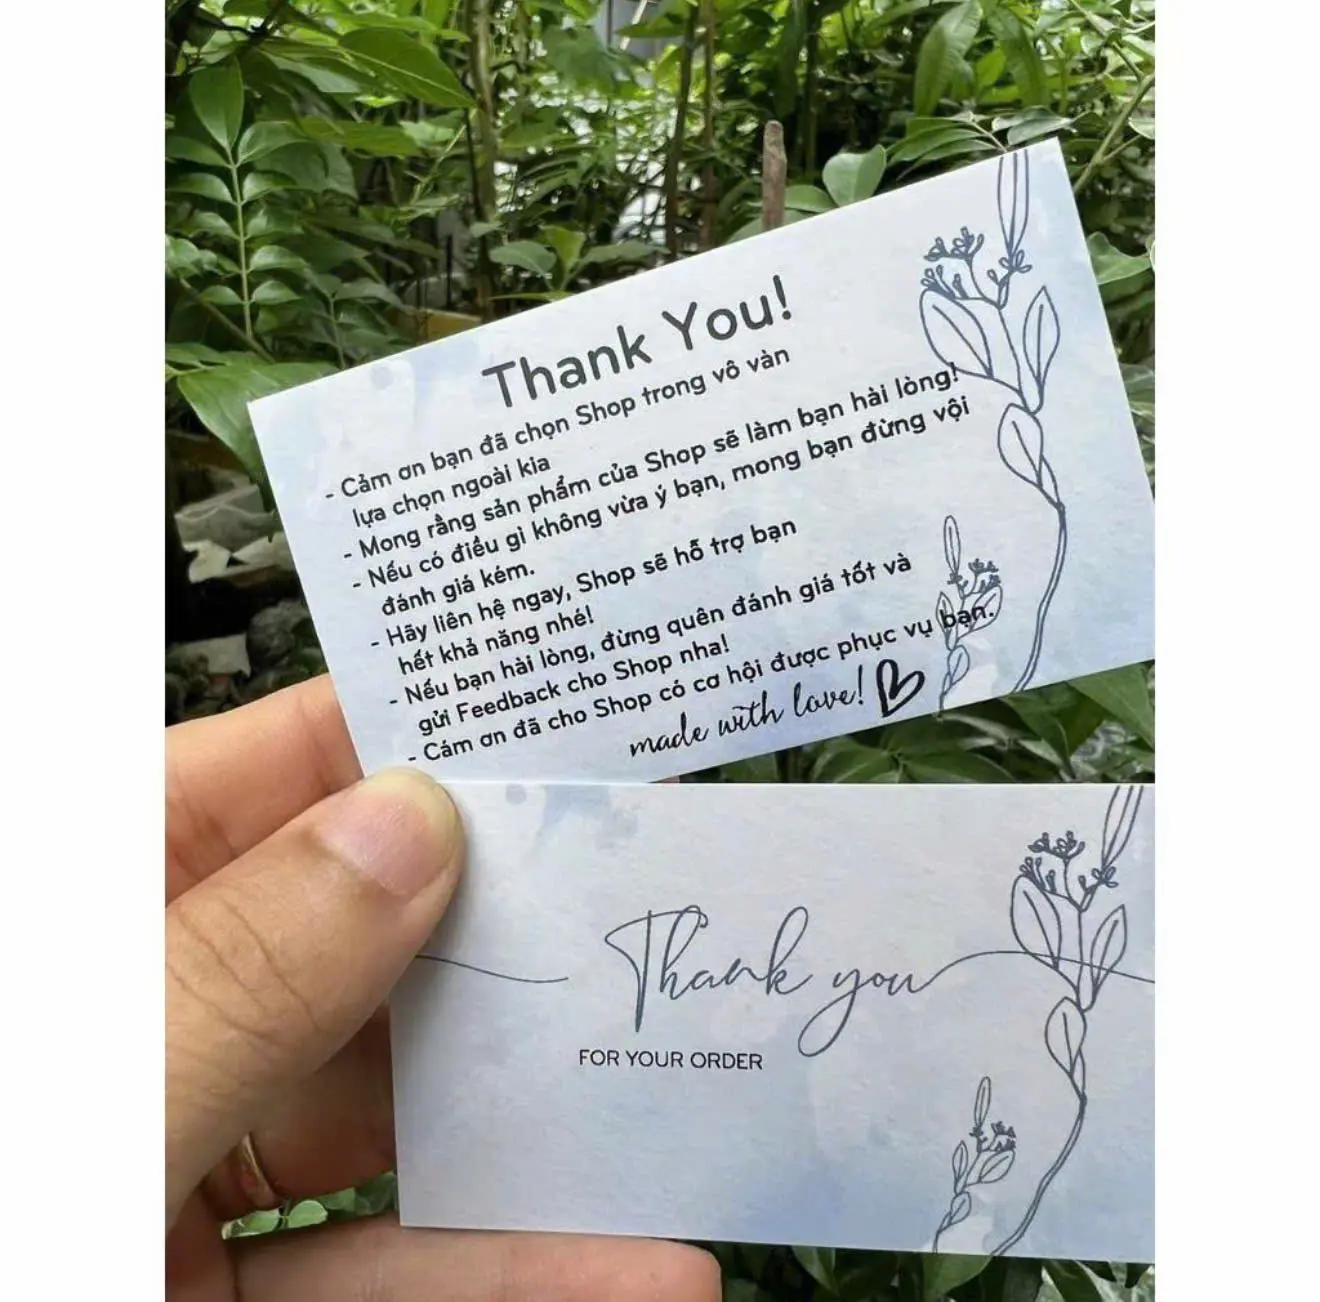 Thank You!
- Cảm ơn bạn đã chọn Shop trong vô vàn
lựa chọn ngoài kia
- Mong rằng sản phẩm của Shop sẽ làm bạn hài lòng!
- Nếu có điều gì không vừa ý bạn, mong bạn đừng vội
đánh giá kém.
- Hãy liên hệ ngay, Shop sẽ hỗ trợ bạn
hết khả năng nhé!
- Nếu bạn hài lòng, đừng quên đánh giá tốt và
gửi Feedback cho Shop nha!
- Cám ơn đã cho Shop có cơ hội được phục vụ bạn.
made with love!
Thank you
FOR YOUR ORDER